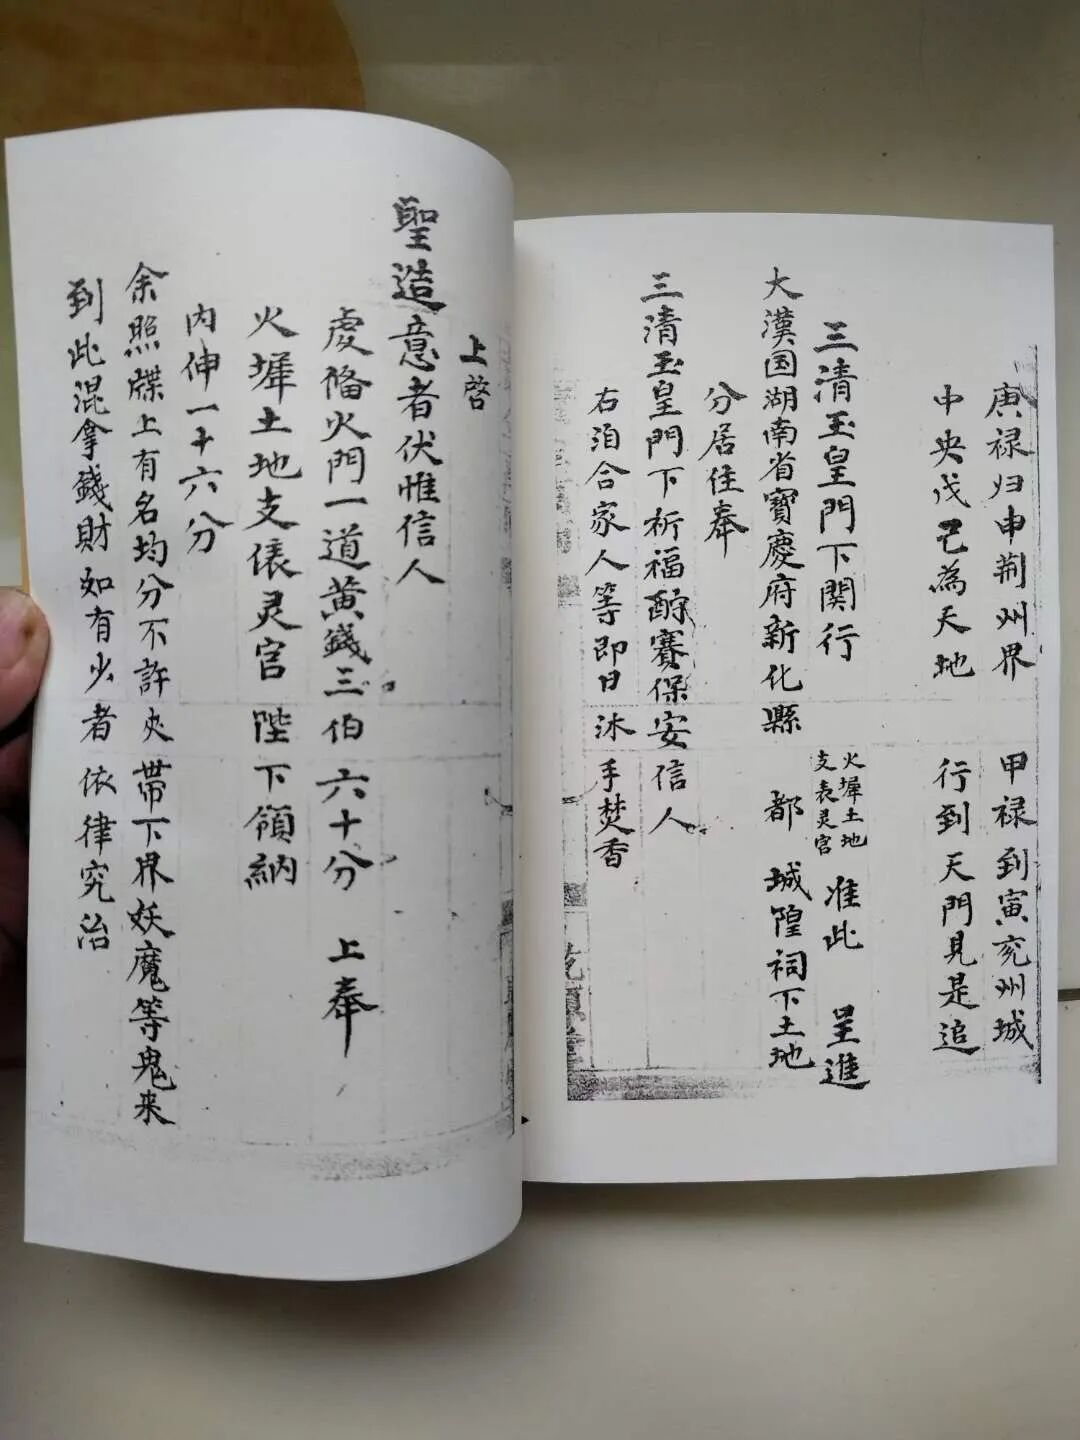 庚禄归申荆州界　甲禄到寅兖州城
中央戊己為天地　行到天門見是追
三清玉皇門下関行　火墀土地
支表灵官　准此　呈進
大漢国湖南省寶慶府新化縣　都　城隍祠下土地
分居住奉
三清玉皇門下祈福酧賽保安信人
右洎合家人等即日沐手焚香
上啓
聖造意者伏惟信人
虔備火門一道黄錢三伯六十分　上奉
火墀土地支俵灵官陛下領納
内伸一十六分
余照牒上有名均分不許夾帶下界妖魔等鬼来
到此混拿錢財如有少者依律究治